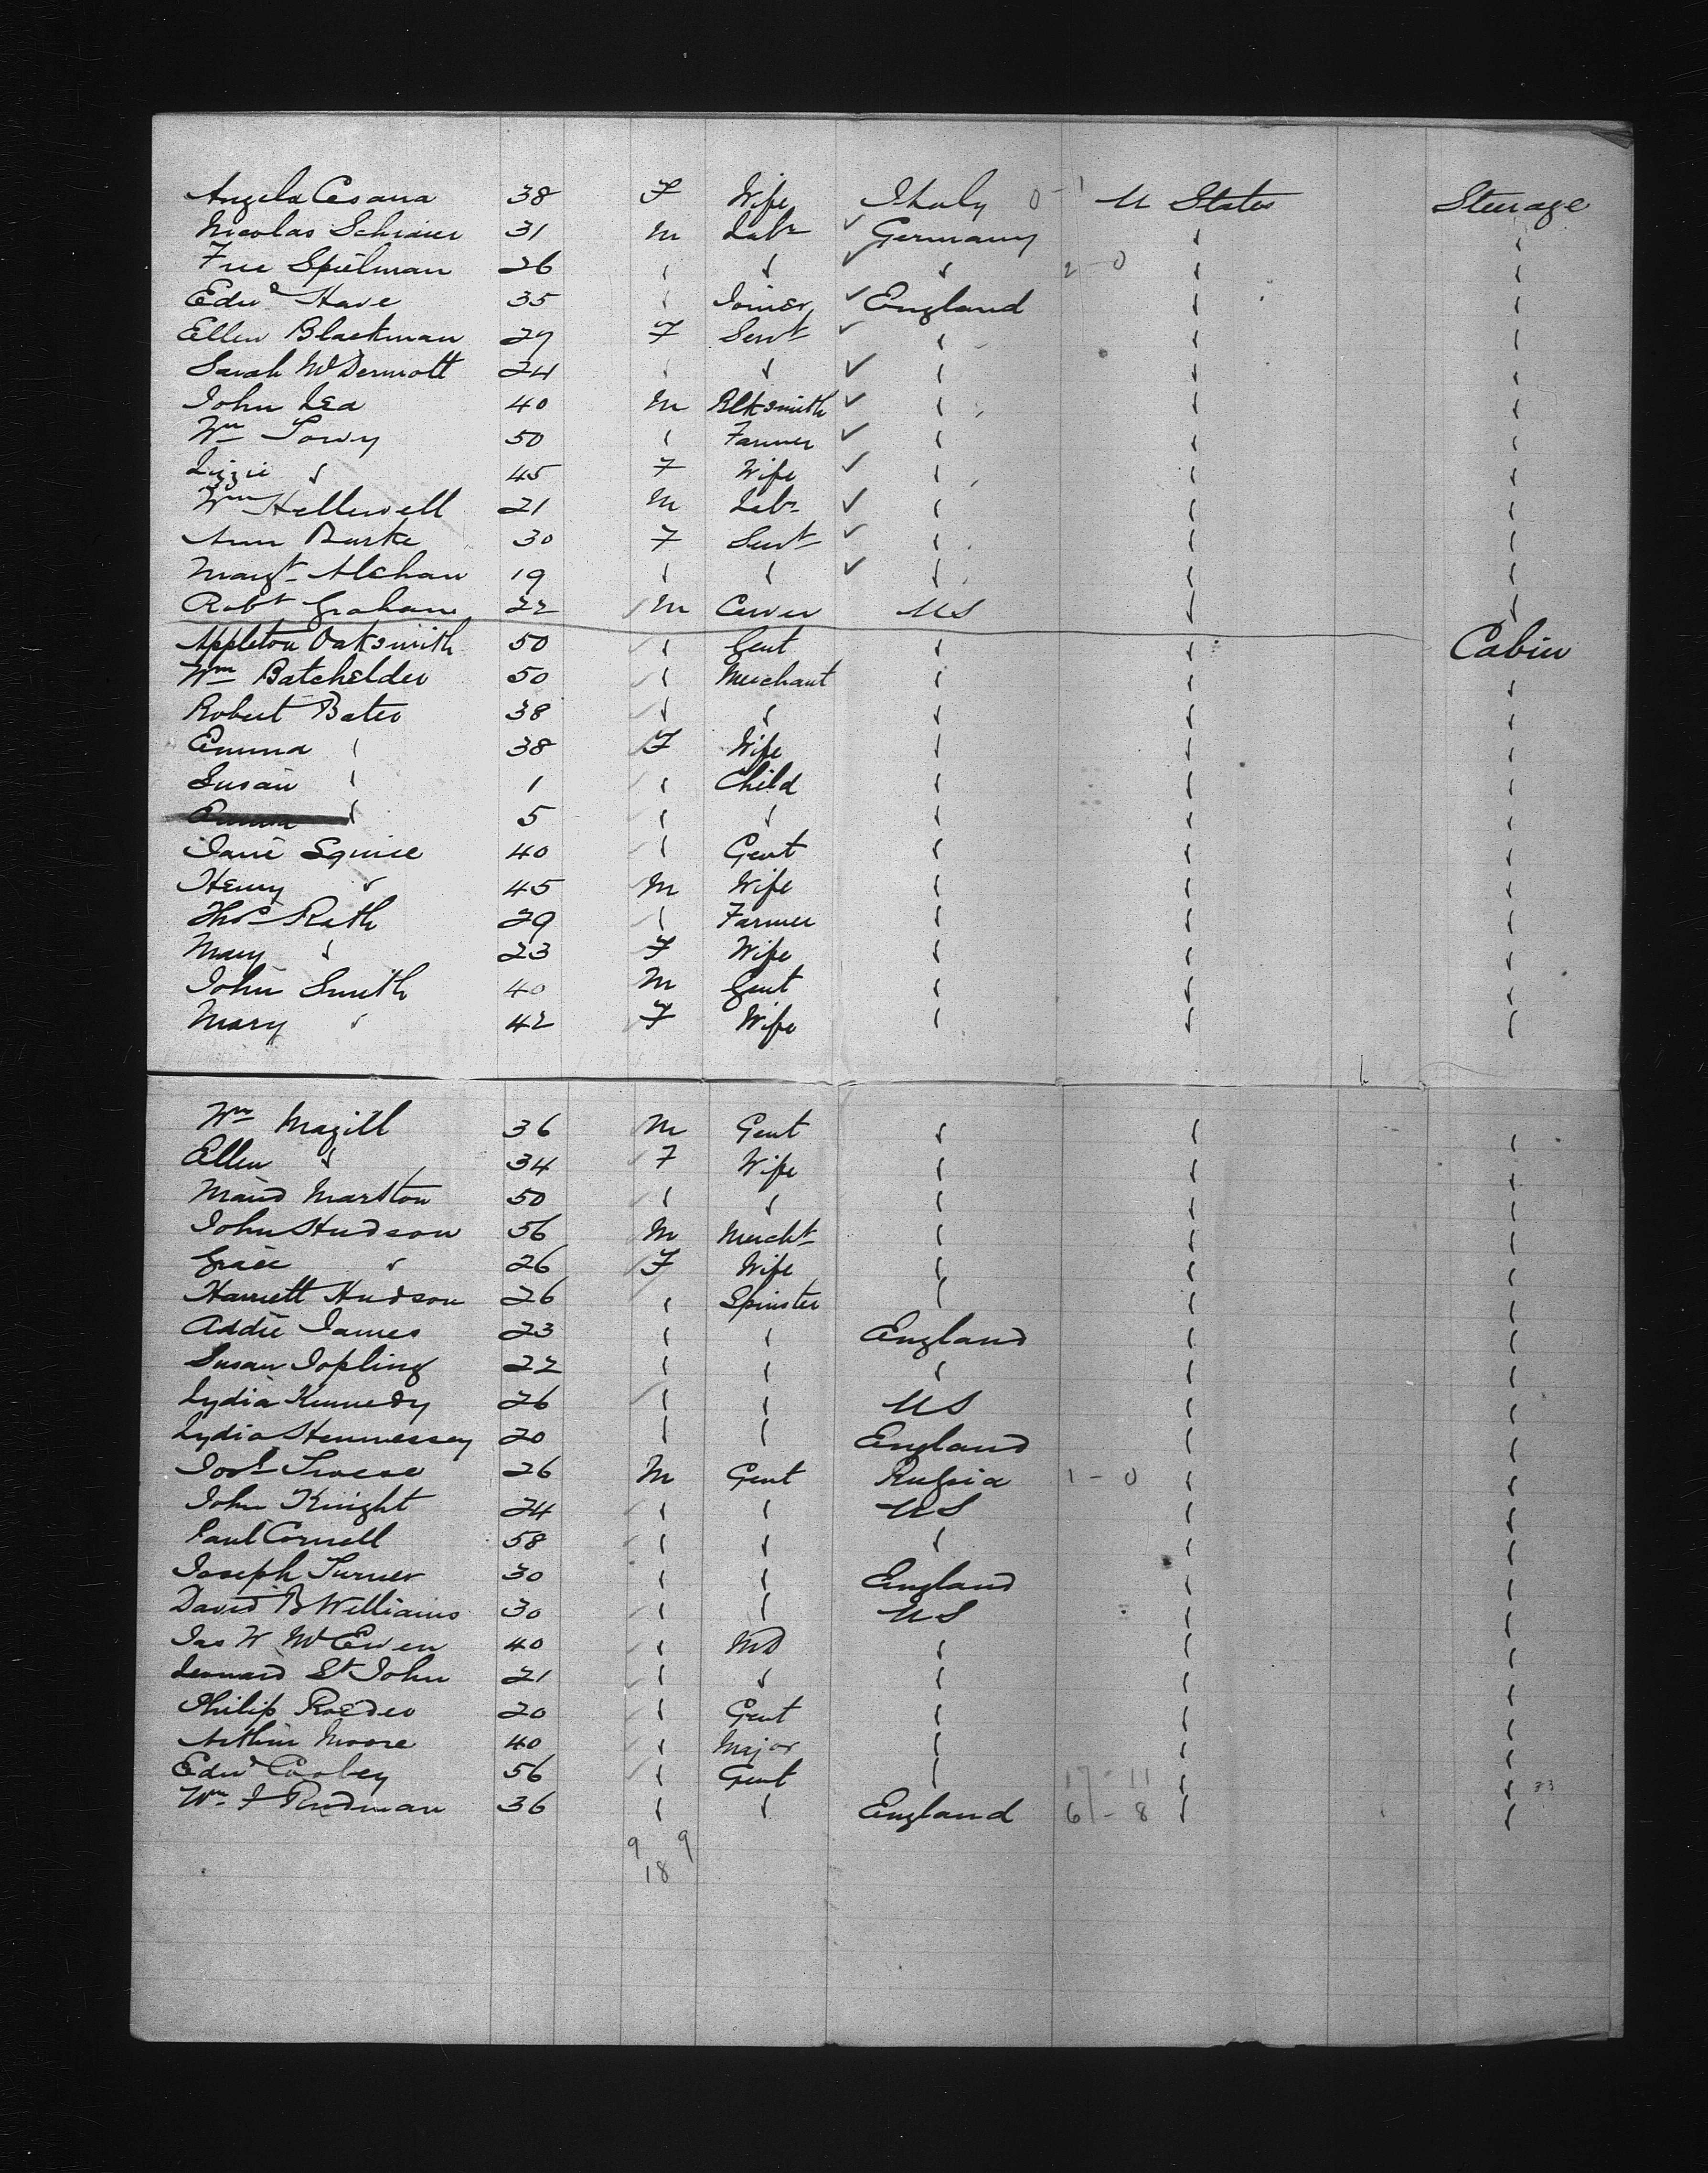 Angela Cesana 38 F Wife Italy 0-1 U States Steerage
Nicolas Schraier 31 M Labr ✓ Germany " "
Free Spielman 26 " " ✓ " 2-0 " "
Edwd Have 35 " Joiner ✓ England " "
Ellen Blackman 29 F Servt ✓ " " "
Sarah McDermott 24 " " ✓ " " "
John Lea 40 M Blksmith ✓ " " "
Wm Lowy 50 " Farmer ✓ " " "
Lizzie " 45 F Wife ✓ " " "
Wm Hellewell 21 M Labr ✓ " " "
Ann Burke 30 F Servt ✓ " " "
Margt Alehan 19 " " ✓ " " "
Robt Graham 22 M US " "
Appleton Oaksmith 50 " Gent " " Cabin
Wm Batchelder 50 " Merchant " " "
Robert Bates 38 " " " " "
Emma " 38 F Wife " " "
Susan " 1 " Child " " "
Emma " 5 " " " " "
Jane Squire 40 " Gent " " "
Henry " 45 M Wife " " "
Thos Rath 29 " Farmer " " "
Mary " 23 F Wife " " "
John Smith 40 M Gent " " "
Mary " 42 F Wife " " "
Wm Magill 36 M Gent " " "
Ellen " 34 F Wife " " "
Maud Marston 50 " " " " "
John Hudson 56 M Mercht " " "
Grace " 26 F Wife " " "
Harriett Hudson 26 " Spinster " " "
Addie James 23 " " England " "
Susan Jopling 22 " " " " "
Lydia Kennedy 26 " " US " "
Lydia Hennessey 20 " " England " "
26 M Gent Russia 1-0 " "
John Knight 24 " " US " "
Paul Cornell 58 " " " " "
Joseph Turner 30 " " England " "
David B Williams 30 " " US " "
Jas W McEwen 40 " MD " " "
Leonard St John 21 " " " " "
Philip Roeder 20 " Gent " " "
Arthur Moore 40 " Major " " "
Edwd Corbey 56 " Gent " 17-11 " " 33
Wm F Rudman 36 " " England 6-8 " "
9 9
18